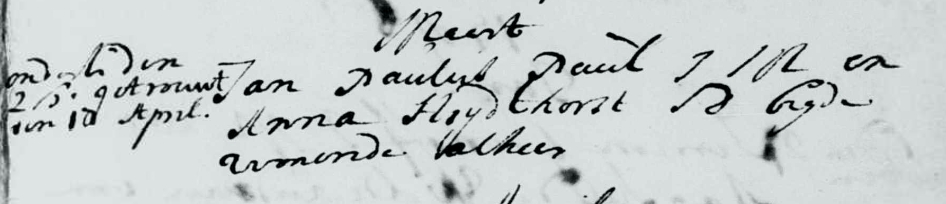 Meert
ond. tr. den
25. getrouwt
den 18 April.
Jan Paulus Paul J M en
Anna Hoydthorst J D byde
wonende alhier